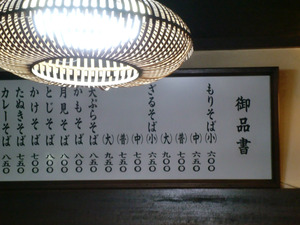 御品書
もりそば(小) 六〇〇
(中) 六五〇
(普) 七〇〇
(大) 九〇〇
ざるそば(小) 六五〇
(中) 七〇〇
(普) 七五〇
(大) 九五〇
天ぷらそば 八五〇
かもそば 八五〇
月見そば 八〇〇
とじそば 八〇〇
かけそば 七〇〇
たぬきそば 七五〇
カレーそば 八五〇